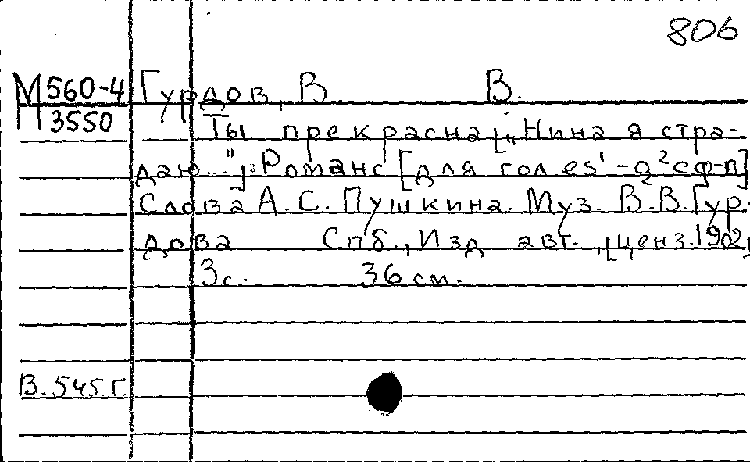 806
М 560-4 Гурдов, В. В.
3550
Ты прекрасна [„Нина я стра-
даю..."]: Романс [для гол. es¹-g² с ф-п]
Слова А. С. Пушкина. Муз. В. В. Гур-
дова Спб., Изд. авт., [ценз. 1902]
3 с. 36 см.
В. 545 Г